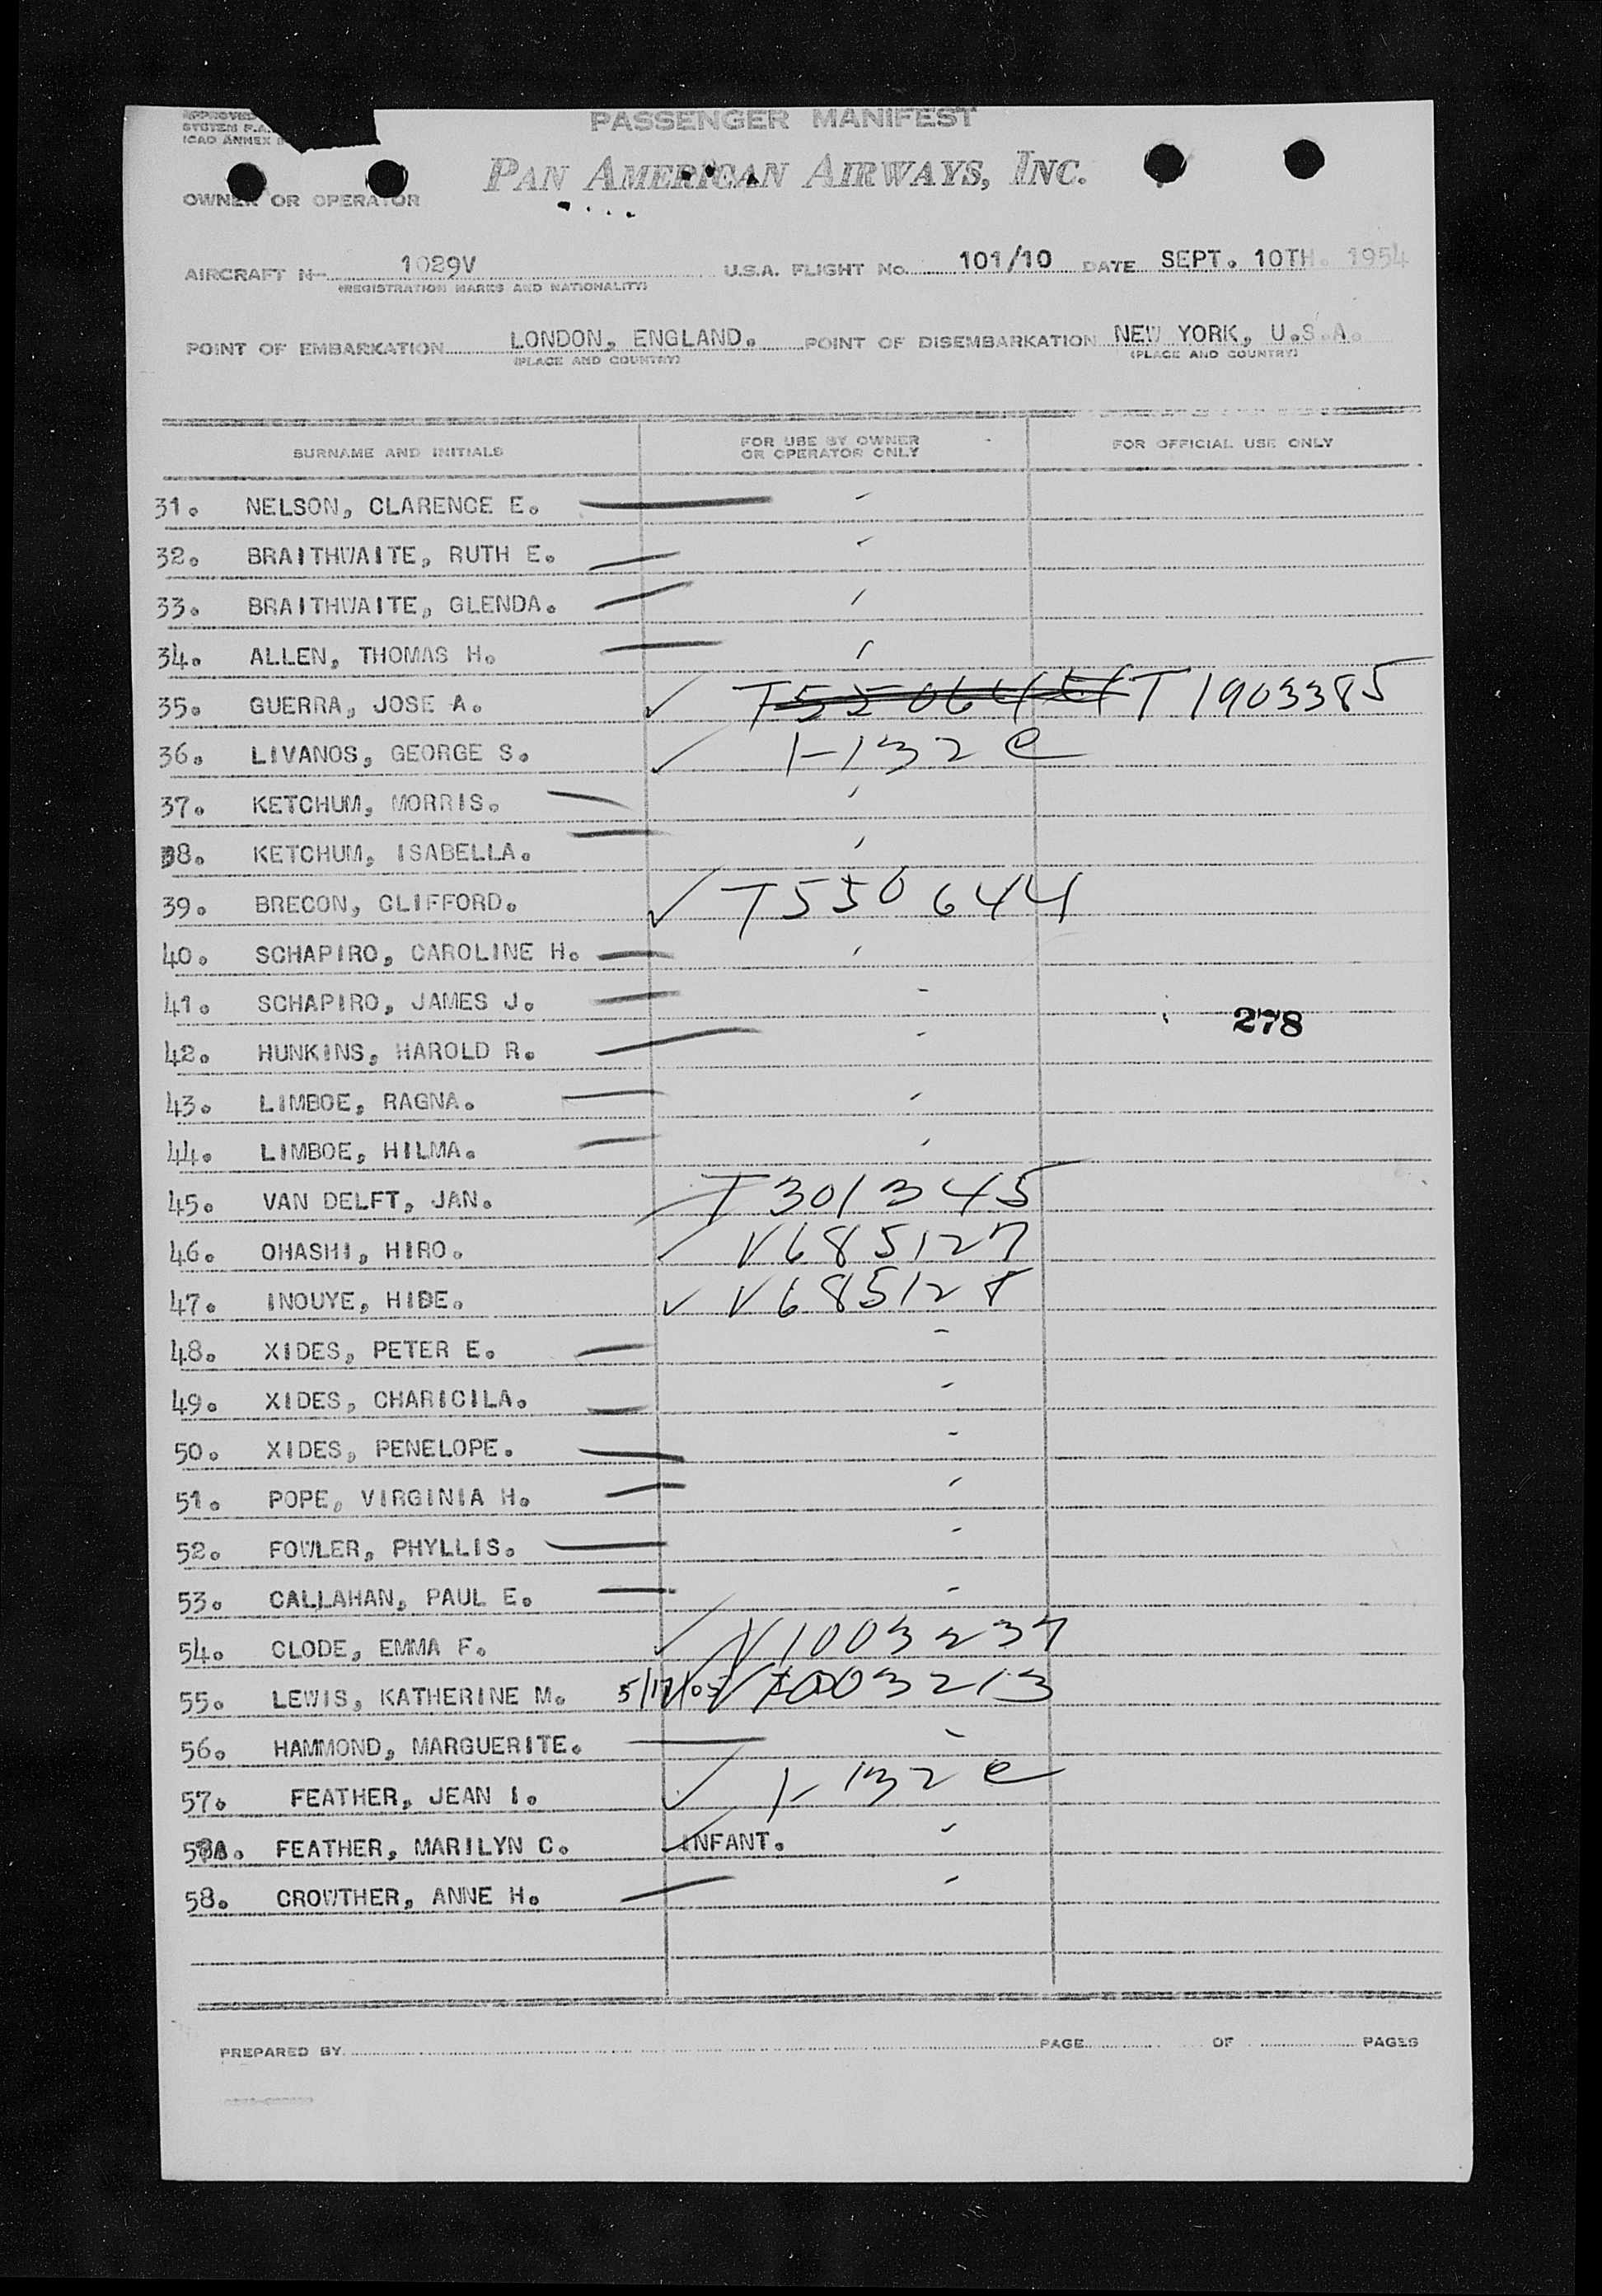 APPROVED
SYSTEM P.A.
ICAO ANNEX
PASSENGER MANIFEST
PAN AMERICAN AIRWAYS, INC.
OWNER OR OPERATOR
AIRCRAFT N- 1029V U.S.A. FLIGHT No. 101/10 DATE SEPT. 10TH. 1954
(REGISTRATION MARKS AND NATIONALITY)
POINT OF EMBARKATION LONDON, ENGLAND. POINT OF DISEMBARKATION NEW YORK, U.S.A.
(PLACE AND COUNTRY) (PLACE AND COUNTRY)
SURNAME AND INITIALS FOR USE BY OWNER OR OPERATOR ONLY FOR OFFICIAL USE ONLY
31. NELSON, CLARENCE E.
32. BRAITHWAITE, RUTH E.
33. BRAITHWAITE, GLENDA.
34. ALLEN, THOMAS H.
35. GUERRA, JOSE A. T550644 T1903385
36. LIVANOS, GEORGE S. 1-132 e
37. KETCHUM, MORRIS.
38. KETCHUM, ISABELLA.
39. BRECON, CLIFFORD. T550644
40. SCHAPIRO, CAROLINE H.
41. SCHAPIRO, JAMES J.
278
42. HUNKINS, HAROLD R.
43. LIMBOE, RAGNA.
44. LIMBOE, HILMA.
45. VAN DELFT, JAN. T301345
46. OHASHI, HIRO. V685127
47. INOUYE, HIDE. V685128
48. XIDES, PETER E.
49. XIDES, CHARICILA.
50. XIDES, PENELOPE.
51. POPE, VIRGINIA H.
52. FOWLER, PHYLLIS.
53. CALLAHAN, PAUL E.
54. CLODE, EMMA F. V1003237
55. LEWIS, KATHERINE M. 5/17/05 V1003213
56. HAMMOND, MARGUERITE.
57. FEATHER, JEAN I. 1-132 e
57A. FEATHER, MARILYN C. INFANT.
58. CROWTHER, ANNE H.
PREPARED BY PAGE OF PAGES